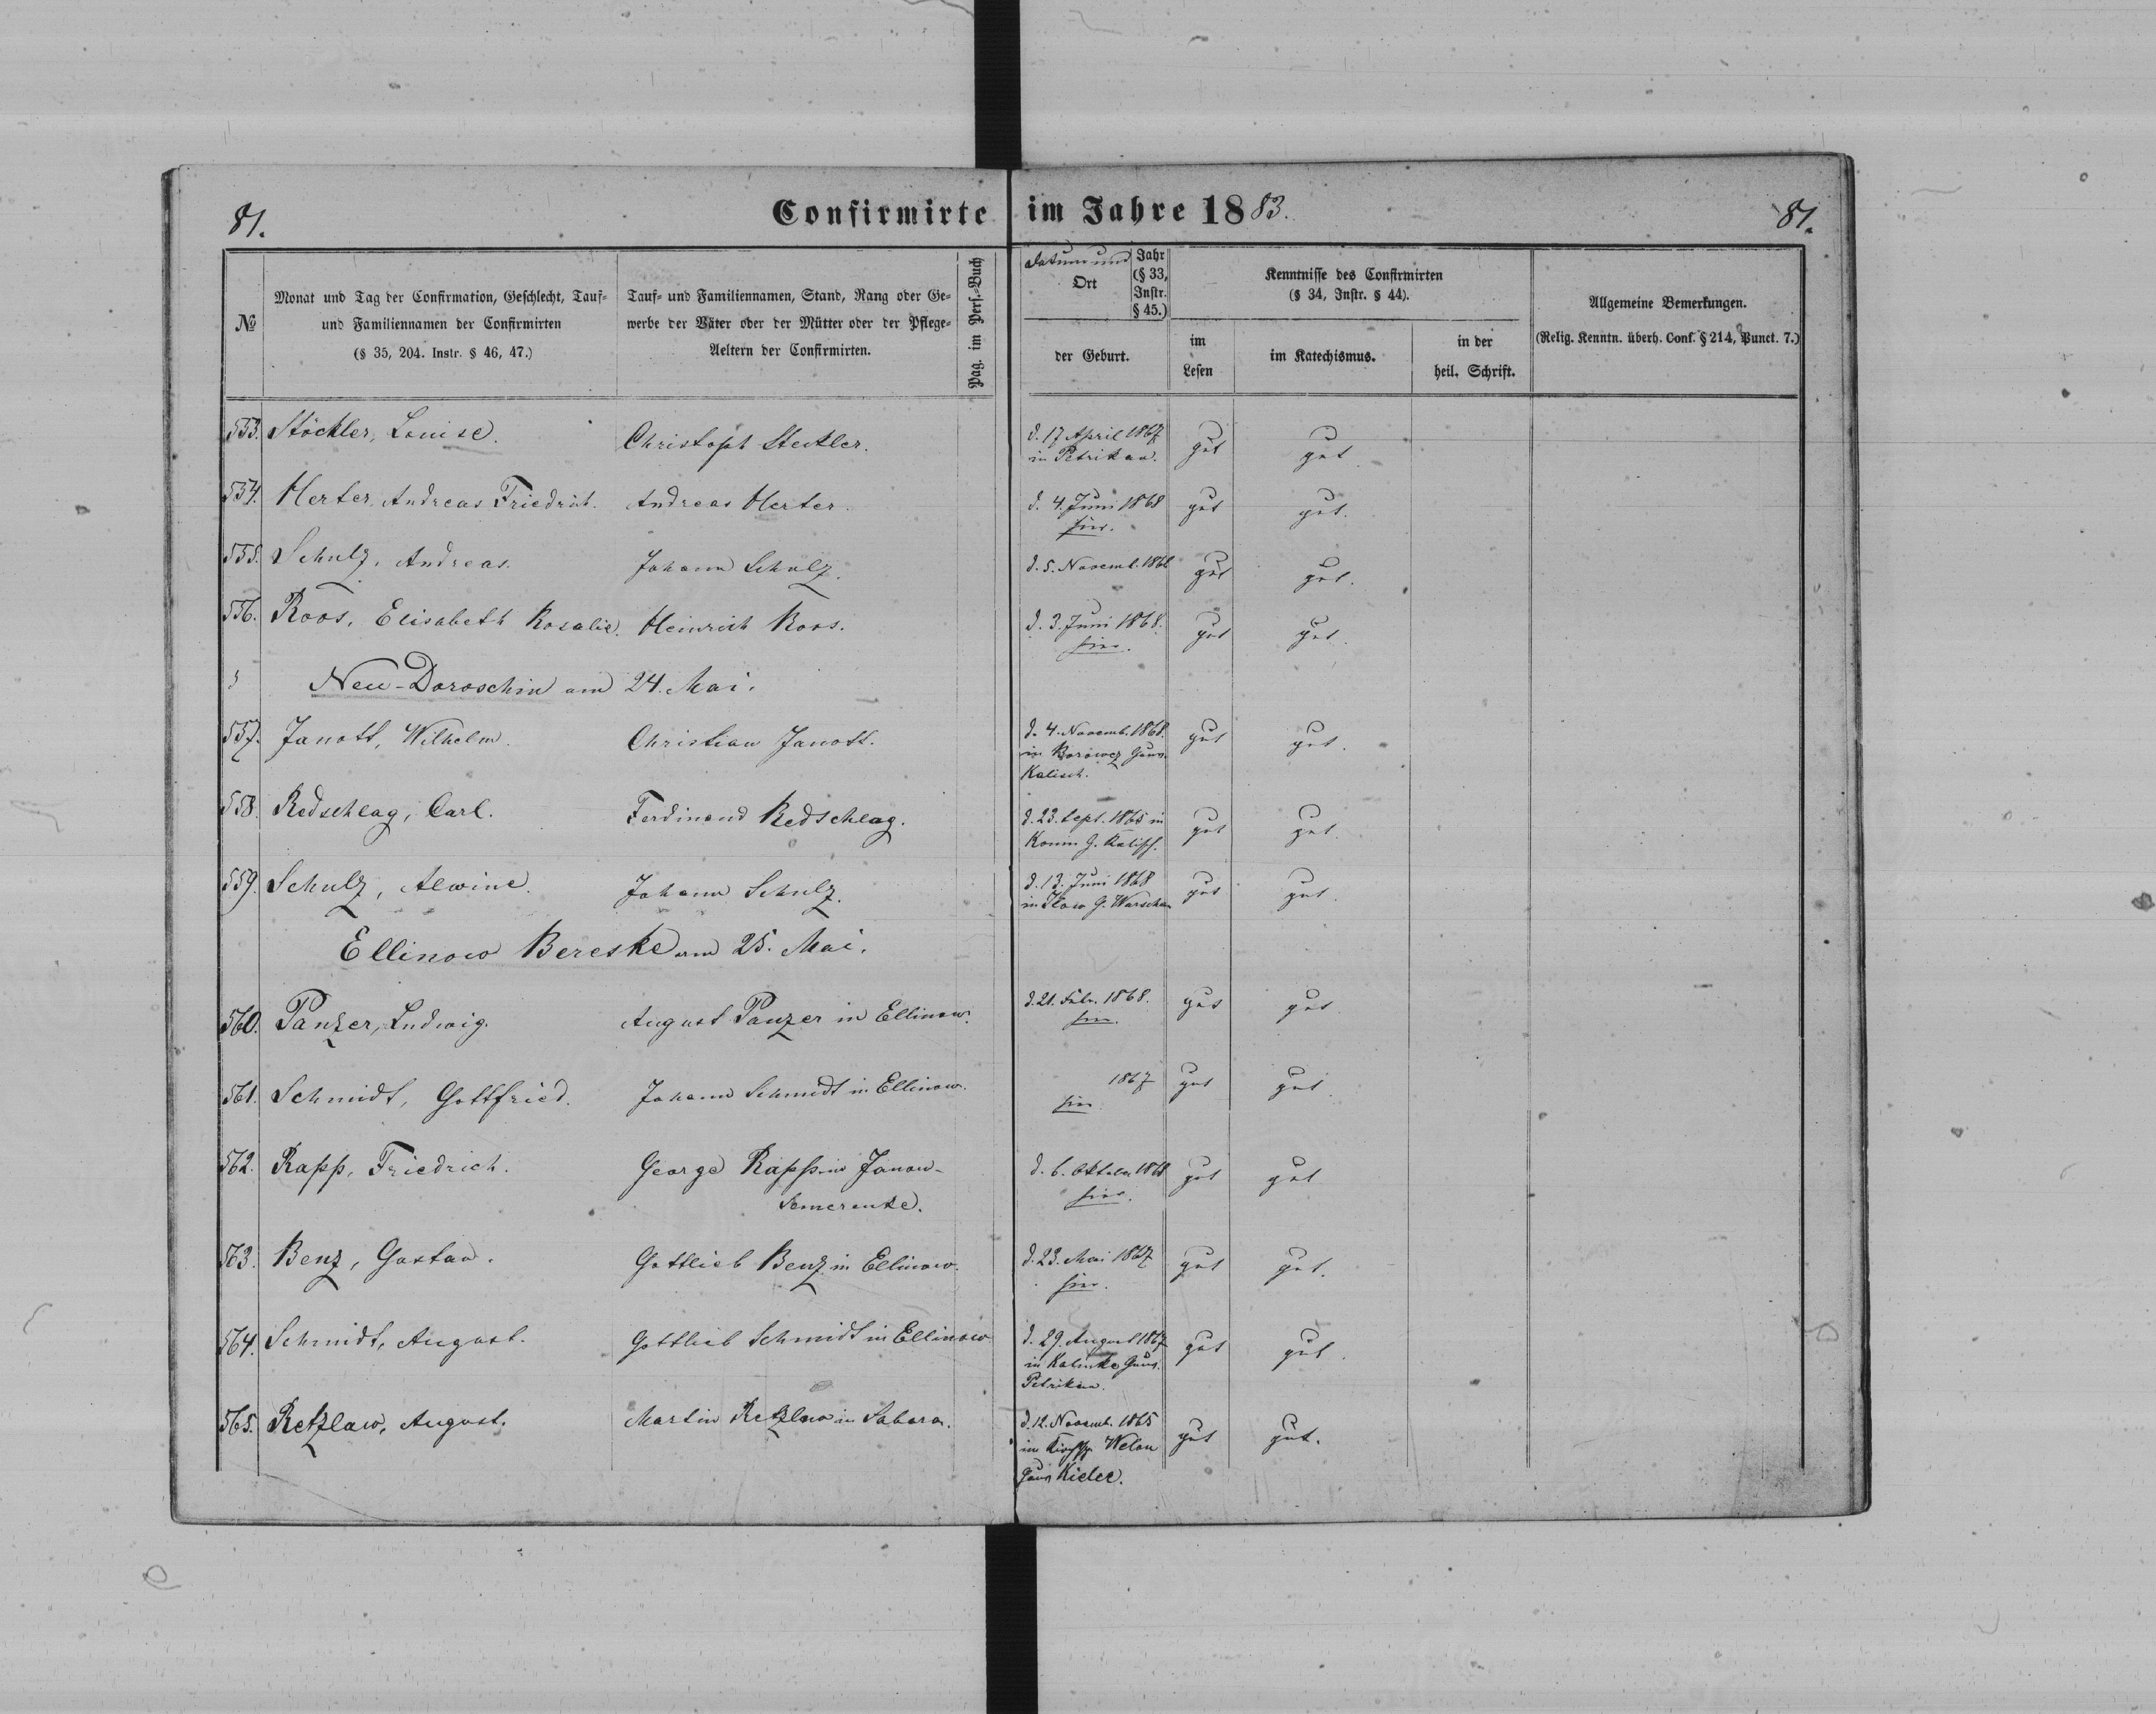 81.
Confirmirte im Jahre 1883.
81.
№
Monat und Tag der Confirmation, Geschlecht, Tauf-
und Familiennamen der Confirmirten
(§ 35, 204. Instr. § 46, 47.)
Tauf- und Familiennamen, Stand, Rang oder Ge-
werbe der Väter oder der Mütter oder der Pflege-
Aeltern der Confirmirten.
Pag. im Pers.-Buch
Datum und
Ort
Jahr
(§ 33,
Instr.
§ 45.)
der Geburt.
Kenntnisse des Confirmirten
(§ 34, Instr. § 44).
im
Lesen
im Katechismus.
in der
heil. Schrift.
Allgemeine Bemerkungen.
(Relig. Kenntn. überh. Conf. § 214, Punct. 7.)
553. Stöckler, Louise. Christoph Steckler. d. 17 April 1867 gut gut.
in Petrikau.
554. Herter, Andreas Friedrich. Andreas Herter. d. 4. Juni 1868 gut gut.
hier.
555. Schulz, Andreas. Johann Schulz. d. 5. Novemb. 1868 gut gut.
556. Roos, Elisabeth Rosalie. Heinrich Roos. d. 3. Juni 1868. gut gut.
hier.
Neu-Doroschin am 24. Mai.
557. Janott, Wilhelm. Christian Janott. d. 4. Novemb. 1868. gut gut.
in Gouv.
Kalisch.
558. Redschlag, Carl. Ferdinand Redschlag. d. 23. Sept. 1865 in gut gut.
Konin G. Kalisch.
559. Schulz, Alwine. Johann Schulz. d. 13. Juni 1868 gut gut.
in Ilow G. Warschau
Ellinow Bereske am 25. Mai.
560. Panzer, Ludwig. August Panzer in Ellinow. d. 21. Febr. 1868. gut gut
hier.
561. Schmidt, Gottfried. Johann Schmidt in Ellinow. 1867 gut gut.
hier
562. Rapp, Friedrich. George Rapp in Janow- d. 6. Oktober 1868 gut gut
Semerenke. hier.
563. Benz, Gustav. Gottlieb Benz in Ellinow. d. 23. Mai 1867 gut gut.
hier.
564. Schmidt, August. Gottlieb Schmidt in Ellinow d. 29. August 1867 gut gut.
in Gouv.
Petrikau.
565. Retzlaw, August. Martin Retzlaw in Sabara. d. 12. Novemb. 1865 gut gut.
im Kirchsp. Welun
Gouv. Kielce.